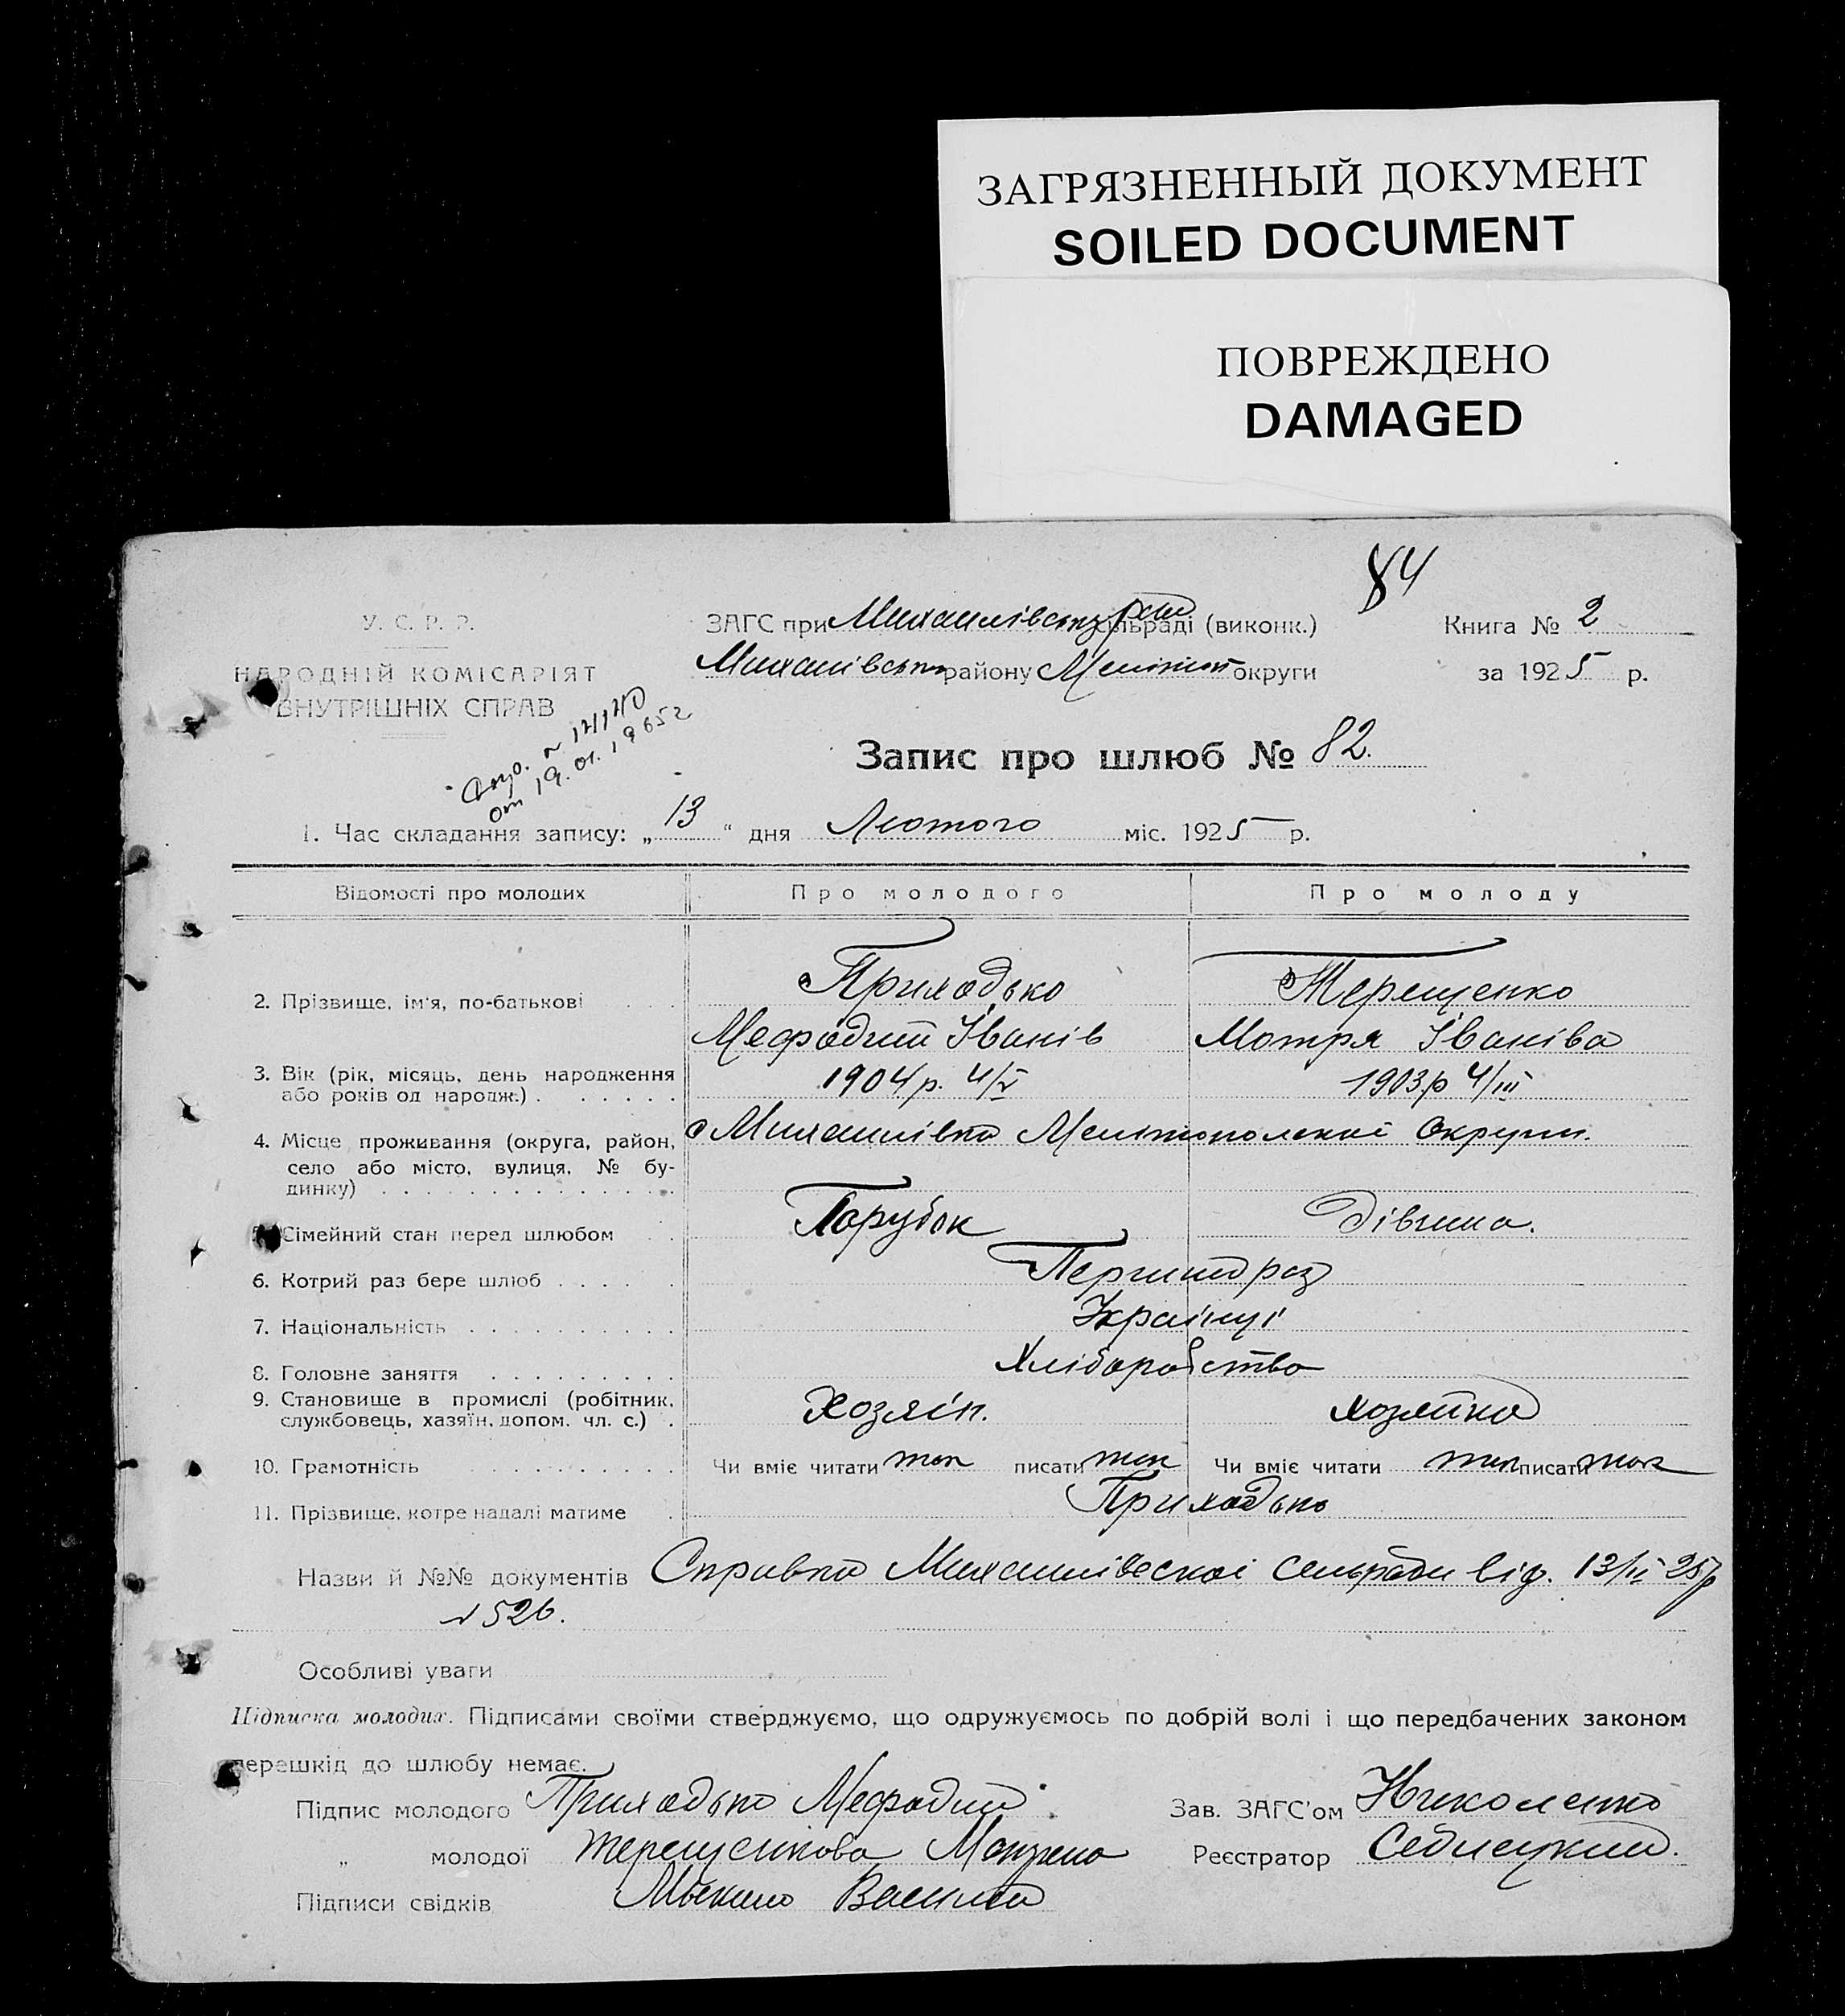 ЗАГРЯЗНЕННЫЙ ДОКУМЕНТ
SOILED DOCUMENT
ПОВРЕЖДЕНО
DAMAGED
84
У. С. Р. Р.
НАРОДНІЙ КОМІСАРІЯТ
ВНУТРІШНІХ СПРАВ
ЗАГС при сільраді (виконк.)
Книга № 2
району округи
за 1925 р.
от 19.01.1965 г
Запис про шлюб № 82.
1. Час складання запису: „13“ дня Лютого міс. 1925 р.
Відомості про молодих Про молодого Про молоду
2. Прізвище, ім'я, по-батькові Приходько Терещенко
Мефодий Іванів Мотря Іваніва
3. Вік (рік, місяць, день народження або років од народж.) 1904 р. 4/V 1903 р 4/III
4. Місце проживання (округа, район, село або місто, вулиця, № будинку) с Михайлівка Мелітопольскої Округи.
5. Сімейний стан перед шлюбом Парубок Дівчина.
6. Котрий раз бере шлюб Перший раз
7. Національність Українці
8. Головне заняття Хліборобство
9. Становище в промислі (робітник, службовець, хазяїн, допом. чл. с.) Хозяїн. хозяйка
10. Грамотність Чи вміє читати так писати так Чи вміє читати так писати так
11. Прізвище, котре надалі матиме Приходько
Назви й №№ документів Справка Михайлівескої сельради від. 13/II 25 р
№ 526.
Особливі уваги
Підписка молодих. Підписами своїми стверджуємо, що одружуємось по добрій волі і що передбачених законом
перешкід до шлюбу немає.
Підпис молодого Приходько Мефодий Зав. ЗАГС'ом Николенко
„ молодої Терещенкова Реєстратор
Підписи свідків